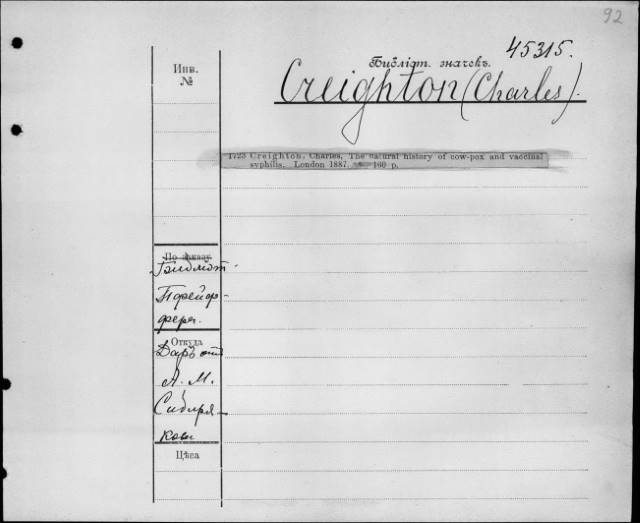 92
45315.
Библіот. значекъ.
Creighton (Charles).
Инв.
№
1723 Creighton, Charles, The natural history of cow-pox and vaccinal
syphilis. London 1887. 160 p.
По заказу
Библіот.
Пфейф-
фера.
Откуда
Даръ отъ
А. М.
Сибиря-
кова
Цѣна